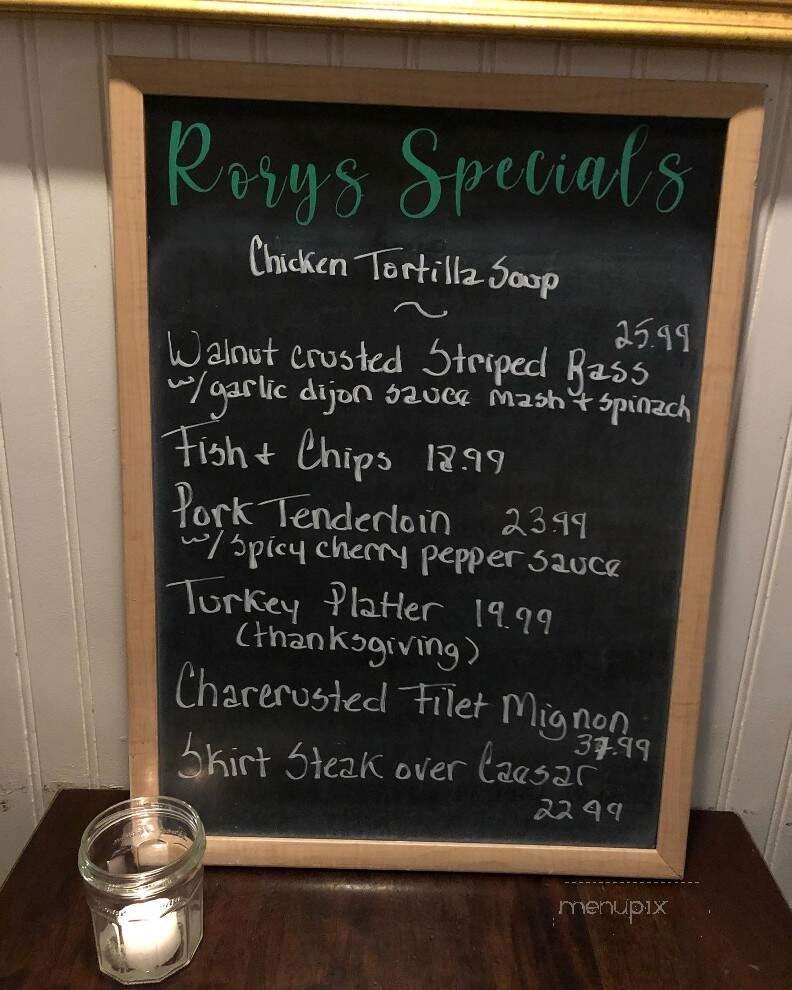 Rorys Specials
Chicken Tortilla Soup
~
25.99
Walnut crusted Striped Bass
w/ garlic dijon sauce mash + spinach
Fish + Chips 18.99
Pork Tenderloin 23.99
w/ spicy cherry pepper sauce
Turkey Platter 19.99
(thanksgiving)
Charcrusted Filet Mignon
37.99
Skirt Steak over Caesar
22.99
menupix